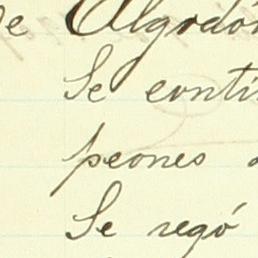 de Algodón
Se conti
peones
Se regó